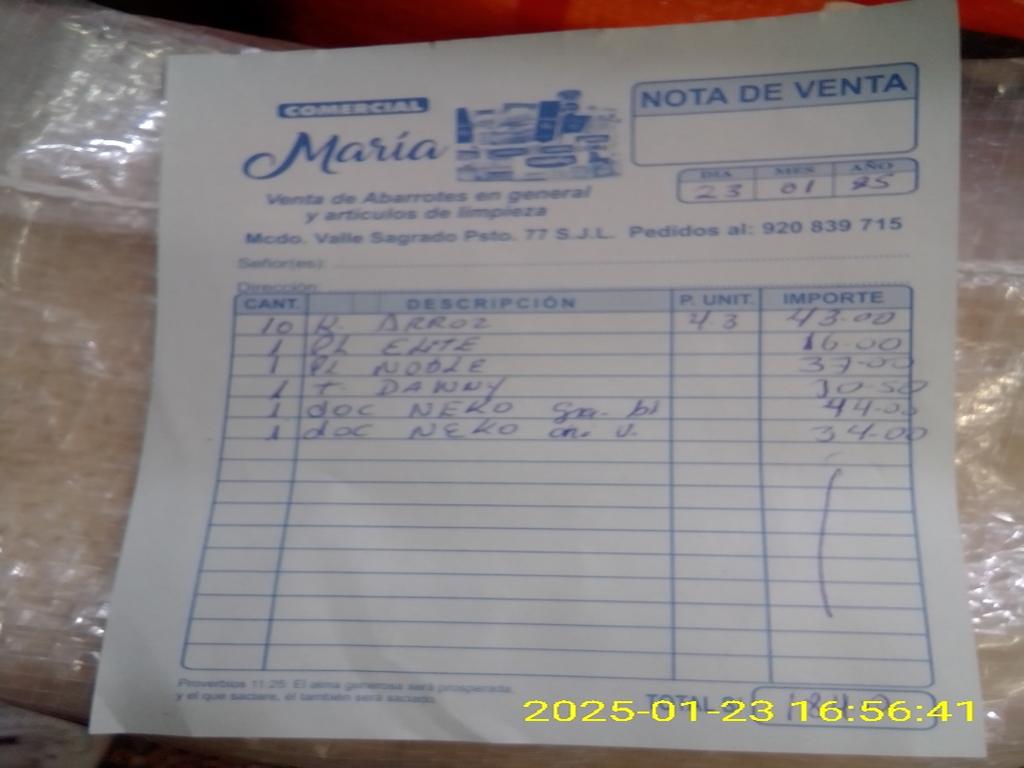 COMERCIAL
María
Venta de Abarrotes en general
y artículos de limpieza
NOTA DE VENTA
DIA MES AÑO
23 01 25
Mcdo. Valle Sagrado Psto. 77 S.J.L. Pedidos al: 920 839 715
Señor(es):
Dirección
CANT. DESCRIPCIÓN P. UNIT. IMPORTE
10 K. ARROZ 4.3 43.00
1 PL ELITE 16.00
1 PL NOBLE 37.00
1 T. DANNY 10.50
1 doc NEKO gra. bl 44.00
1 doc NEKO 34.00
Proverbios 11:25: El alma generosa será prosperada,
y el que saciare, él también será saciado.
TOTAL S/
2025-01-23 16:56:41